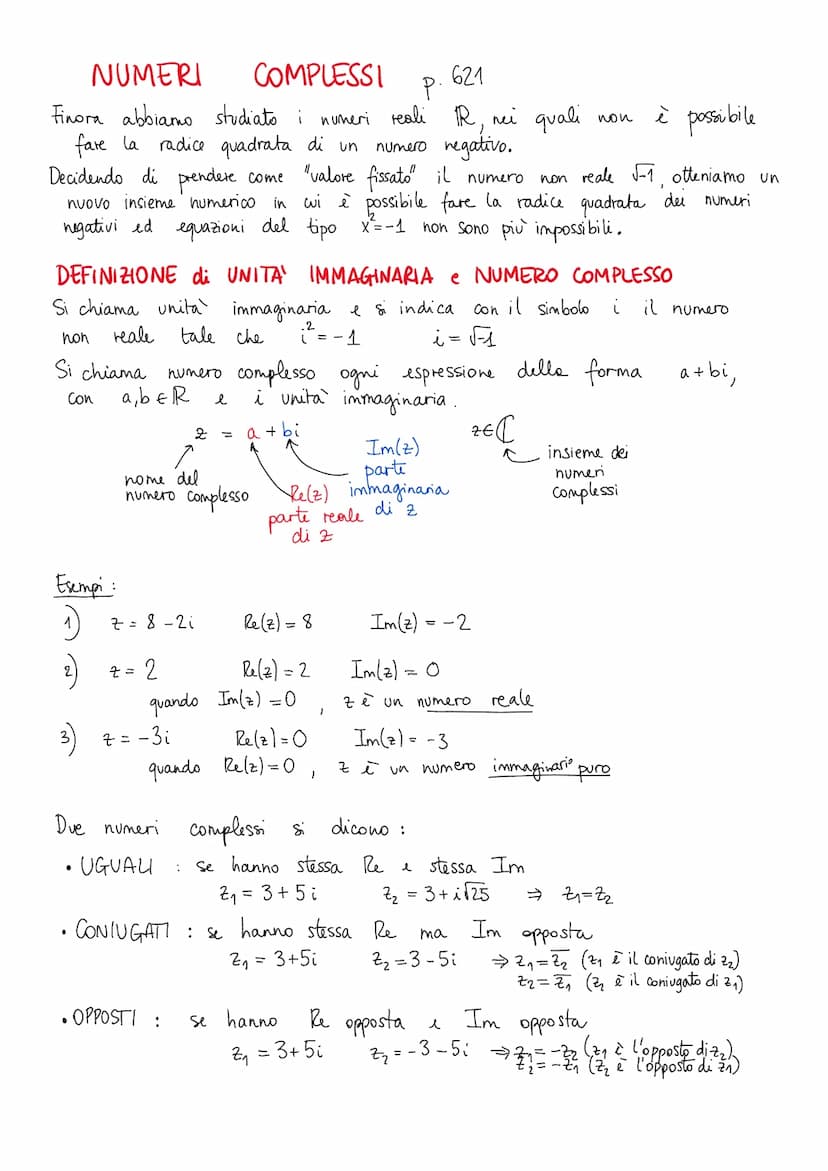 NUMERI COMPLESSI p. 621
Finora abbiamo studiato i numeri reali ℝ, nei quali non è possibile
fare la radice quadrata di un numero negativo.
Decidendo di prendere come "valore fissato" il numero non reale √-1, otteniamo un
nuovo insieme numerico in cui è possibile fare la radice quadrata dei numeri
negativi ed equazioni del tipo x²=-1 non sono più impossibili.
DEFINIZIONE di UNITA' IMMAGINARIA e NUMERO COMPLESSO
Si chiama unità immaginaria e si indica con il simbolo i il numero
non reale tale che i² = -1 i = √-1
Si chiama numero complesso ogni espressione della forma a+bi,
con a,b ∈ ℝ e i unità immaginaria.
z = a + bi z∈ℂ
nome del
numero complesso
Re(z)
parte reale
di z
Im(z)
parte
immaginaria
di z
insieme dei
numeri
complessi
Esempi :
1) z = 8 - 2i Re(z) = 8 Im(z) = -2
2) z = 2 Re(z) = 2 Im(z) = 0
quando Im(z) = 0 , z è un numero reale
3) z = -3i Re(z) = 0 Im(z) = -3
quando Re(z) = 0 , z è un numero immaginario puro
Due numeri complessi si dicono :
• UGUALI : se hanno stessa Re e stessa Im
z₁ = 3 + 5i z₂ = 3 + i√25 ⇒ z₁=z₂
• CONIUGATI : se hanno stessa Re ma Im opposta
z₁ = 3+5i z₂ = 3 - 5i ⇒ z₁ = z̅₂ (z₁ è il coniugato di z₂)
z₂ = z̅₁ (z₂ è il coniugato di z₁)
• OPPOSTI : se hanno Re opposta e Im opposta
z₁ = 3+5i z₂ = -3 - 5i ⇒ z₁ = -z₂ (z₁ è l'opposto di z₂)
z₂ = -z₁ (z₂ è l'opposto di z₁)